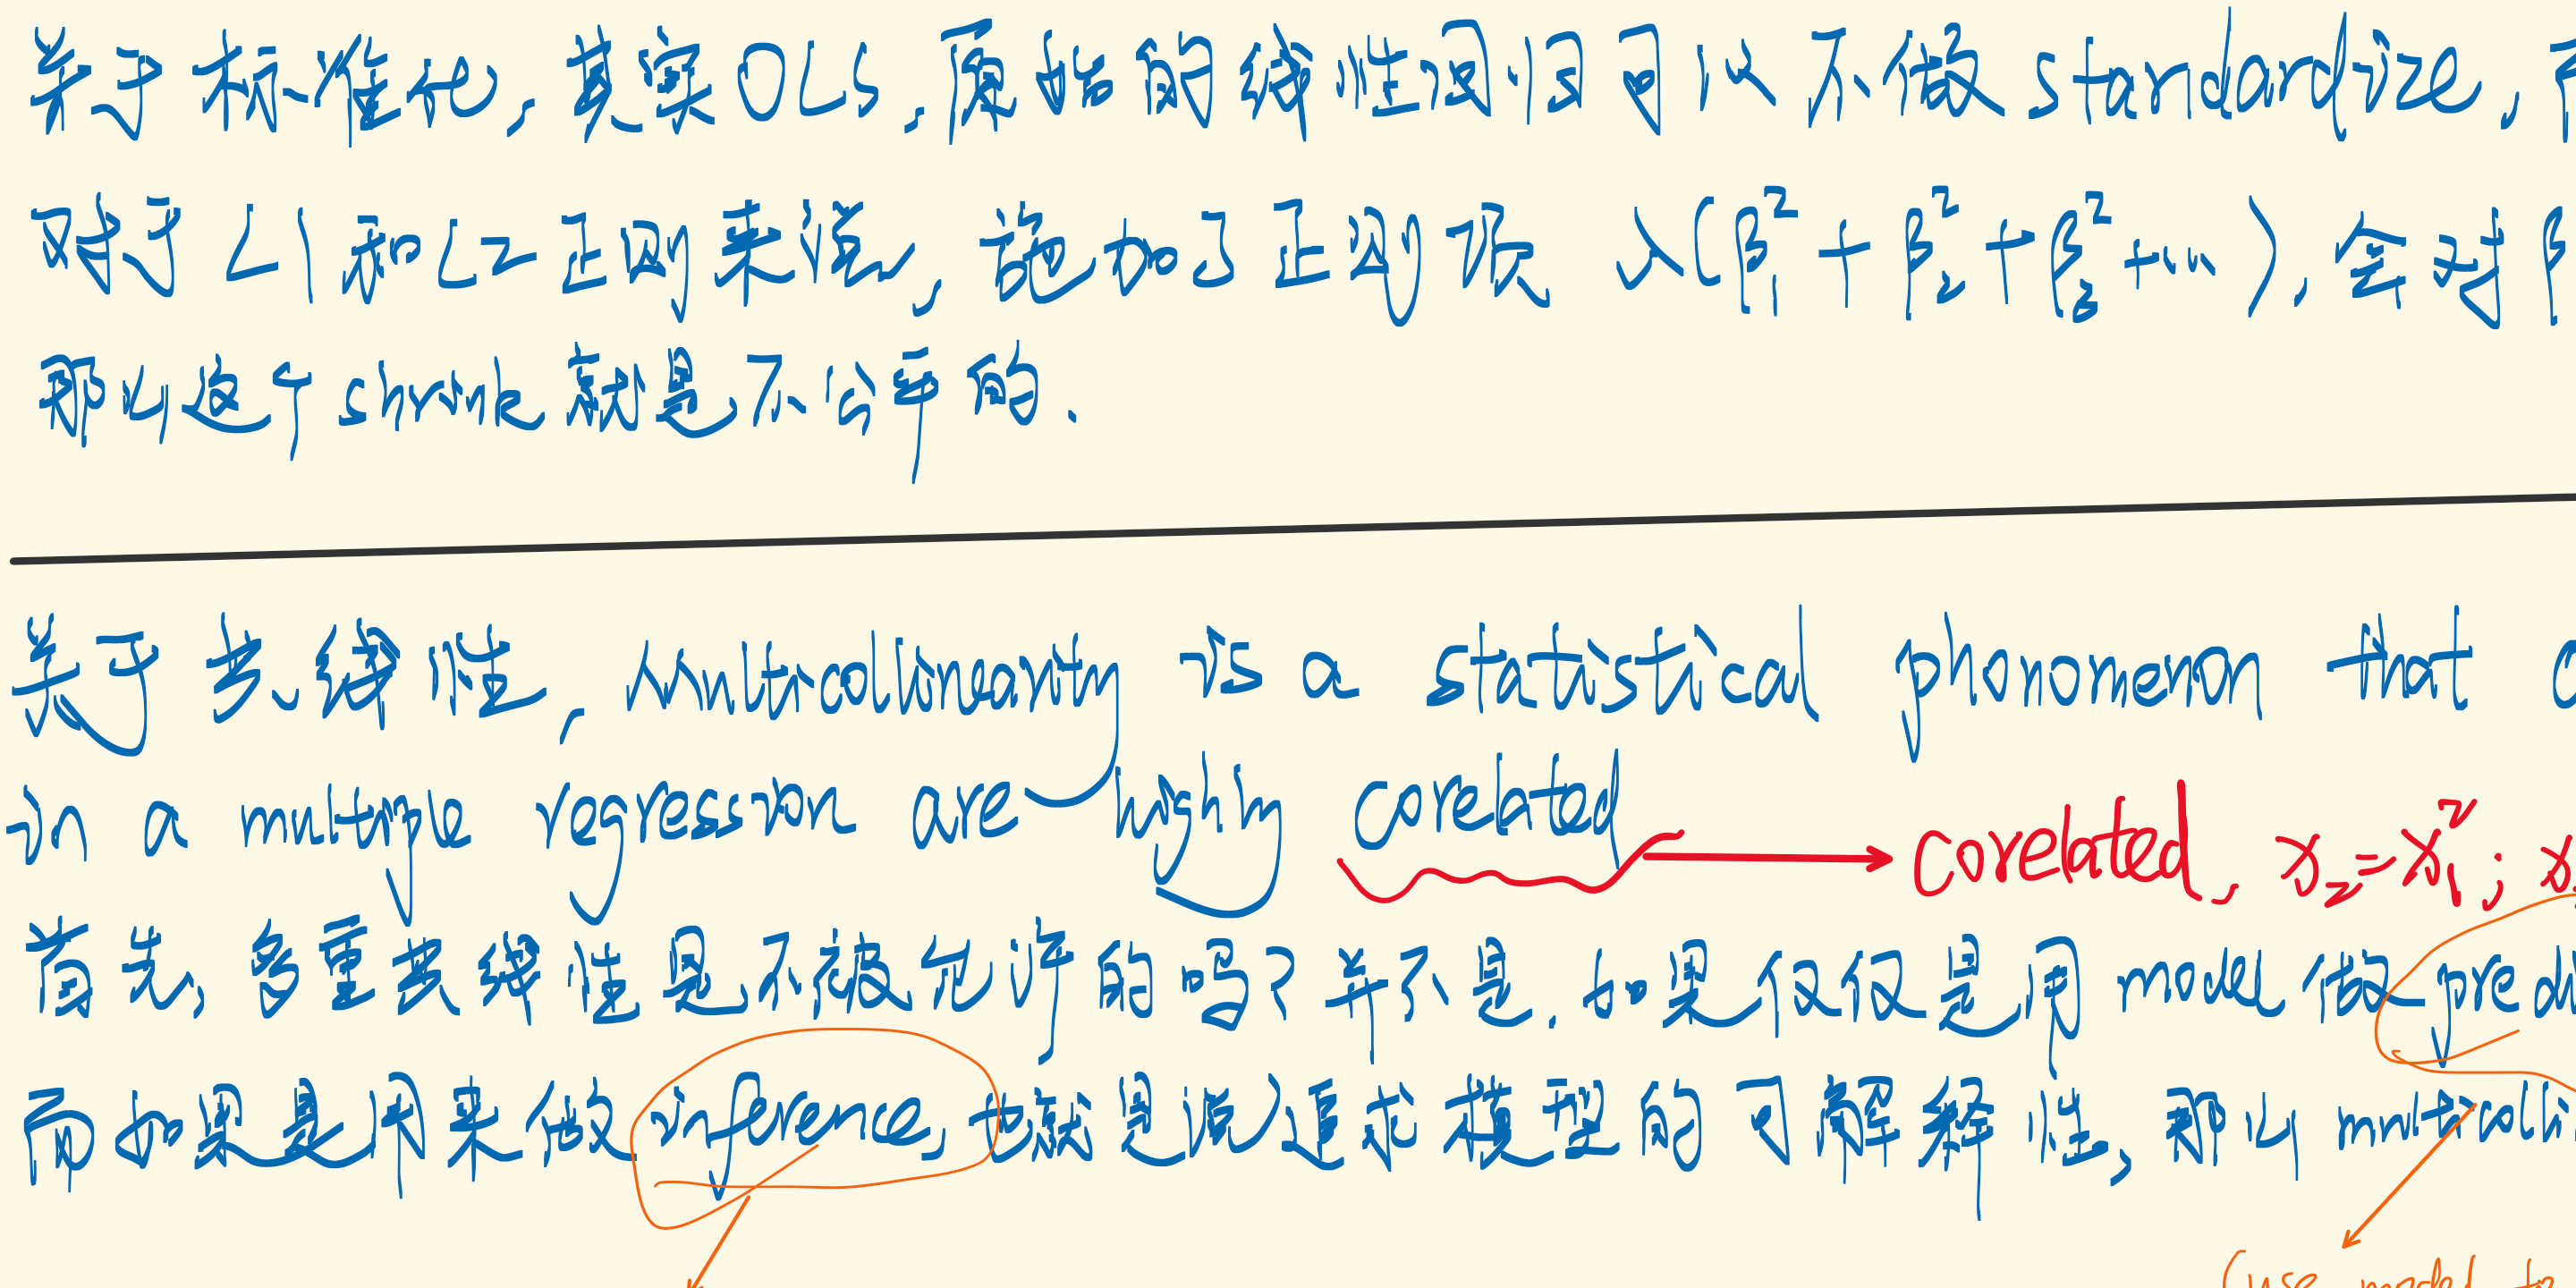 关于标准化,其实OLS,原始的线性回归可以不做standardize,而
对于L1和L2正则来说,施加了正则项 λ(β₁²+β₂²+β₃²+...),会对β
那么这个shrink就是不公平的.
关于共线性, Multicollinearity is a statistical phonomenon that
in a multiple regression are highly corelated
corelated, x₂=x₁²; x
首先,多重共线性是不被允许的吗?并不是.如果仅仅是用model做
而如果是用来做inference,也就是说追求模型的可解释性,那么
(use model to